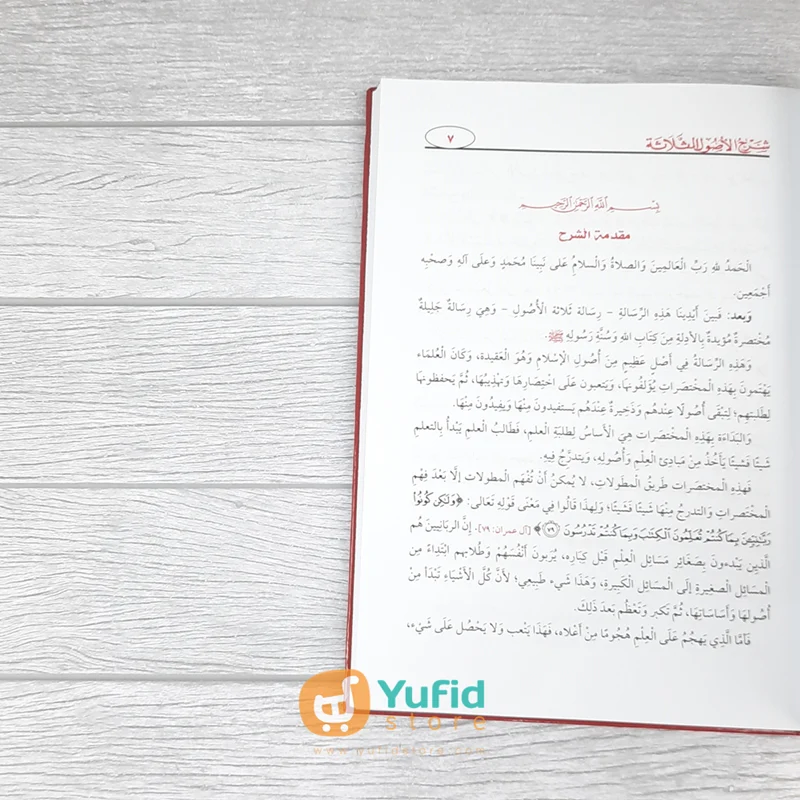 شرح الأصول الثلاثة
٧
بِسْمِ اللَّهِ الرَّحْمَنِ الرَّحِيمِ
مقدمة الشرح
الْحَمدُ للهِ رَبِّ الْعَالَمِينَ وَالصلاةُ وَالْسلامُ عَلى نَبِينَا مُحَمدٍ وَعَلى آلهِ وَصَحْبِه
أَجْمَعِين.
وَبعد: فَبينَ أَيْدِينَا هَذِهِ الرِّسَالةِ - رِسَالة ثَلاثة الأُصُولِ - وَهِيَ رِسَالةٌ جَلِيلةٌ
مُختصرةٌ مُؤيدةٌ بِالأدِلةِ مِنَ كِتَابِ اللهِ وَسُنَّةِ رَسُولهِ ﷺ.
وَهَذِهِ الرِّسَالةُ فِي أَصْلٍ عَظِيمٍ مِنَ أُصُولِ الْإسْلامِ وَهُوَ الْعَقيدة، وَكَانَ الْعُلمَاء
يَهْتَمونَ بِهَذِهِ الْمختَصَراتِ يُؤَلفُونَها، وَيَتعبون عَلَى اخْتِصَارِهَا وَتَهْذِيبُهَا، ثُمَّ يَحفظونَها
لِطَلبتِهم؛ لِتبْقَى أُصُولًا عِنْدَهُم وَذَخِيرةً عِنْدَهُم يَستفيدونَ مِنْهَا وَيفيدُون مِنْهَا.
وَالْبَدَاءَة بِهَذِهِ الْمختَصرات هِيَ الْأَساسُ لِطلبَةِ الْعلم، فَطالبُ الْعلم يَبْدأُ بِالتعلم
شَيئًا فَشيئًا يَأْخُذُ مِنْ مَبَادِئ الْعِلْمِ وَأُصُوله، وَيتدرَّجُ فِيهِ.
فَهذِهِ الْمختصرات طَريقُ الْمطولات، لا يُمكنُ أَنْ تُفْهَم الْمطولات إلَّا بَعدَ فِهْمِ
الْمختصرات وَالتدرجِ مِنْهَا شَيئًا فَشيئًا؛ وَلِهذا قَالُوا فِي مَعْنَى قَولِهِ تَعَالى: ﴿وَلَٰكِن كُونُوا۟
رَبَّٰنِيِّـۧنَ بِمَا كُنتُمْ تُعَلِّمُونَ ٱلْكِتَٰبَ وَبِمَا كُنتُمْ تَدْرُسُونَ ٧٩﴾ [آل عمران: ٧٩]. إنَّ الربَّانِيينَ هُم
الَّذين يَبْدءونَ بِصَغَائر مَسَائل الْعِلْم قَبْل كِبَاره، يُرَبونَ أَنْفُسَهُمْ وَطُلابهم ابْتِدَاءً مِنَ
الْمسَائل الْصغيرةِ إلَى الْمسَائل الْكَبيرةِ، وَهَذَا شَيء طَبيعي؛ لأَنَّ كُلَّ الْأَشْيَاءِ تَبْدَأ مِنْ
أُصُولِهَا وَأَسَاسَاتِهَا، ثُمَّ تَكبر وَتَعْظُم بَعدَ ذَلِكَ.
فَأمَّا الَّذي يَهجُمُ عَلَى الْعِلْمِ هُجُومًا مِنْ أَعْلاه، فَهَذَا يَتْعب وَلا يَحْصُل عَلَى شَيْءٍ،
Yufid
store
www.yufidstore.com